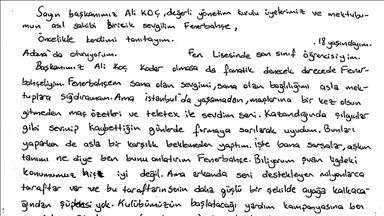 Sayın başkanımız Ali KOÇ, değerli yönetim kurulu üyelerimiz ve mektubu-
mun asıl sahibi Biricik sevgilim Fenerbahçe,
Öncelikle kendimi tanıtayım. 18 yaşındayım.
Adana'da oturuyorum. Fen Lisesinde son sınıf öğrencisiyim.
Başkanımız Ali Koç kadar olmasa da fanatik denecek derecede Fener-
bahçeliyim. Fenerbahçem sana olan sevgimi, sana olan bağlılığımı asla mek-
tuplara sığdıramam. Ama istanbul'da yaşamadan, maçlarına bir kez olsun
gitmeden maç özetleri ve teletex ile sevdim seni. Kazandığında çılgınlar
gibi sevinip kaybettiğin günlerde formaya sarılarak uyudum. Bunları
yaparken de asla bir karşılık beklemeden yaptım. işte bana sorsalar, aşkın
tanımı ne diye ben bunu anlatırım Fenerbahçe. Biliyorum şuan ligdeki
konumumuz hiç iyi değil. Ama arkanda seni destekleyen milyonlarca
taraftar var ve bu taraftarın senin daha güçlü bir şekilde ayağa kalkaca-
ğından şüphesi yok. Kulübümüzün başlatacağı yardım kampanyasına ben